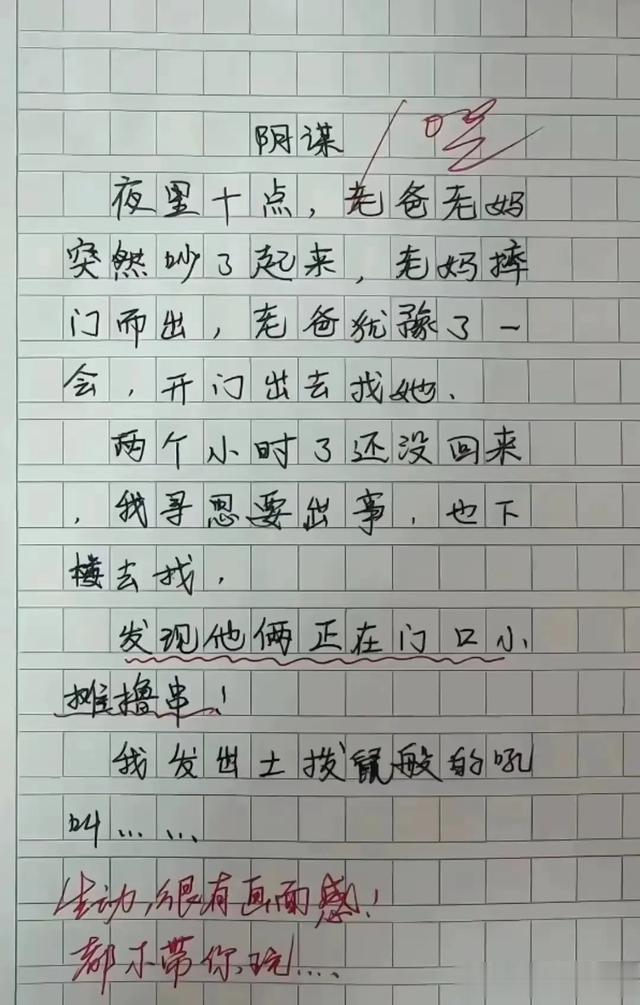 阴谋
夜里十点，老爸老妈
突然吵了起来，老妈摔
门而出，老爸犹豫了一
会，开门出去找她．
两个小时了还没回来
，我寻思要出事，也下
楼去找，
发现他俩正在门口小
摊撸串！
我发出土拨鼠般的吼
叫……
生动，很有画面感！
都不带你玩……